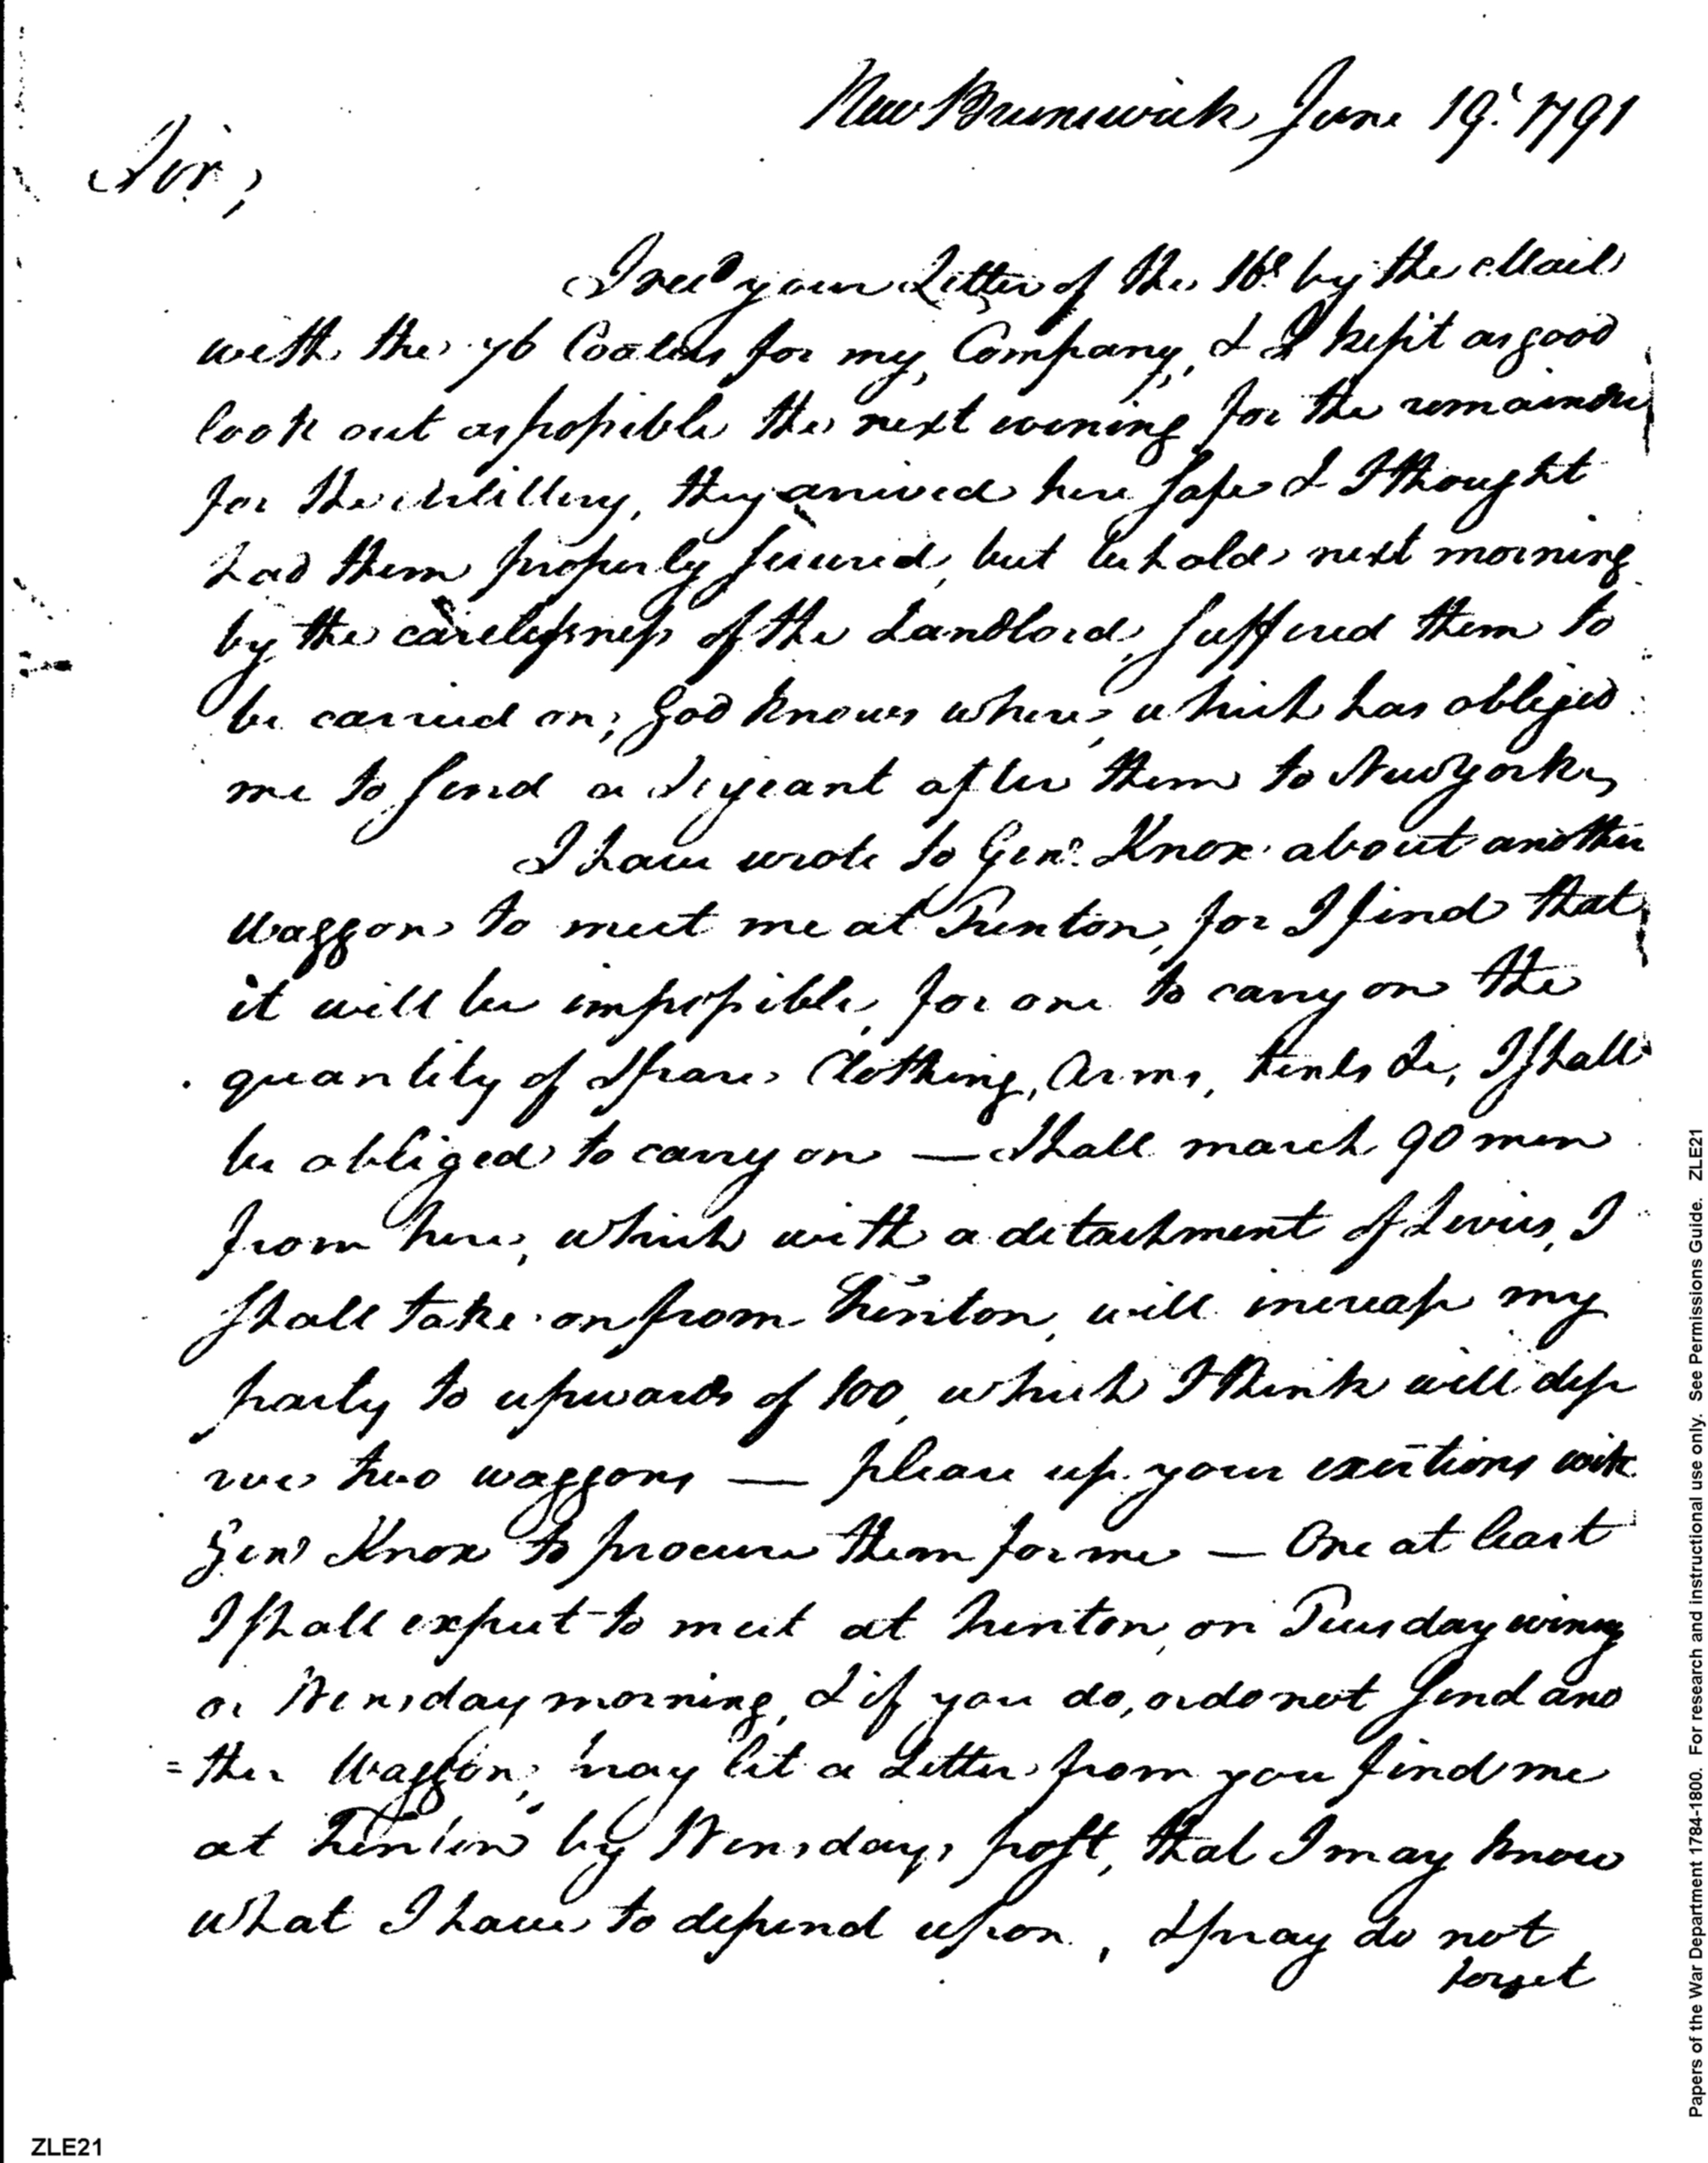 New Brunswick June 19.' 1791
Sir,
I recd your Letter of the 16th by the Mail
with the 76 Coatees for my Company, & I kept as good
look out as possible the next evening for the remainder
for the Artillery, they arrived here safe & I thought
had them properly secured, but behold next morning
by the carelessness of the Landlord, suffered them to
be carried on, God knows where, which has obliged
me to send a Sergeant after them to New York,
I have wrote to Genl. Knox about another
Waggon to meet me at Trenton, for I find that
it will be impossible, for one to carry on the
quantity of Spare Clothing, Arms, tents &c, I shall
be obliged to carry on — Shall march 90 men
from here, which with a detachment of Levies, I
shall take on from Trenton, will increase my
party to upwards of 100, which I think will dese
rve two waggons — please use your exertions with
Genl Knox to procure them for me — One at least
I shall expect to meet at Trenton, on Tuesday evening
or Wensday morning, & if you do, or do not send ano
= ther Waggon, pray let a Letter from you find me
at Trenton by Wensdays post, that I may know
what I have to depend upon, & pray do not
forget
ZLE21
Papers of the War Department 1784-1800. For research and instructional use only. See Permissions Guide. ZLE21